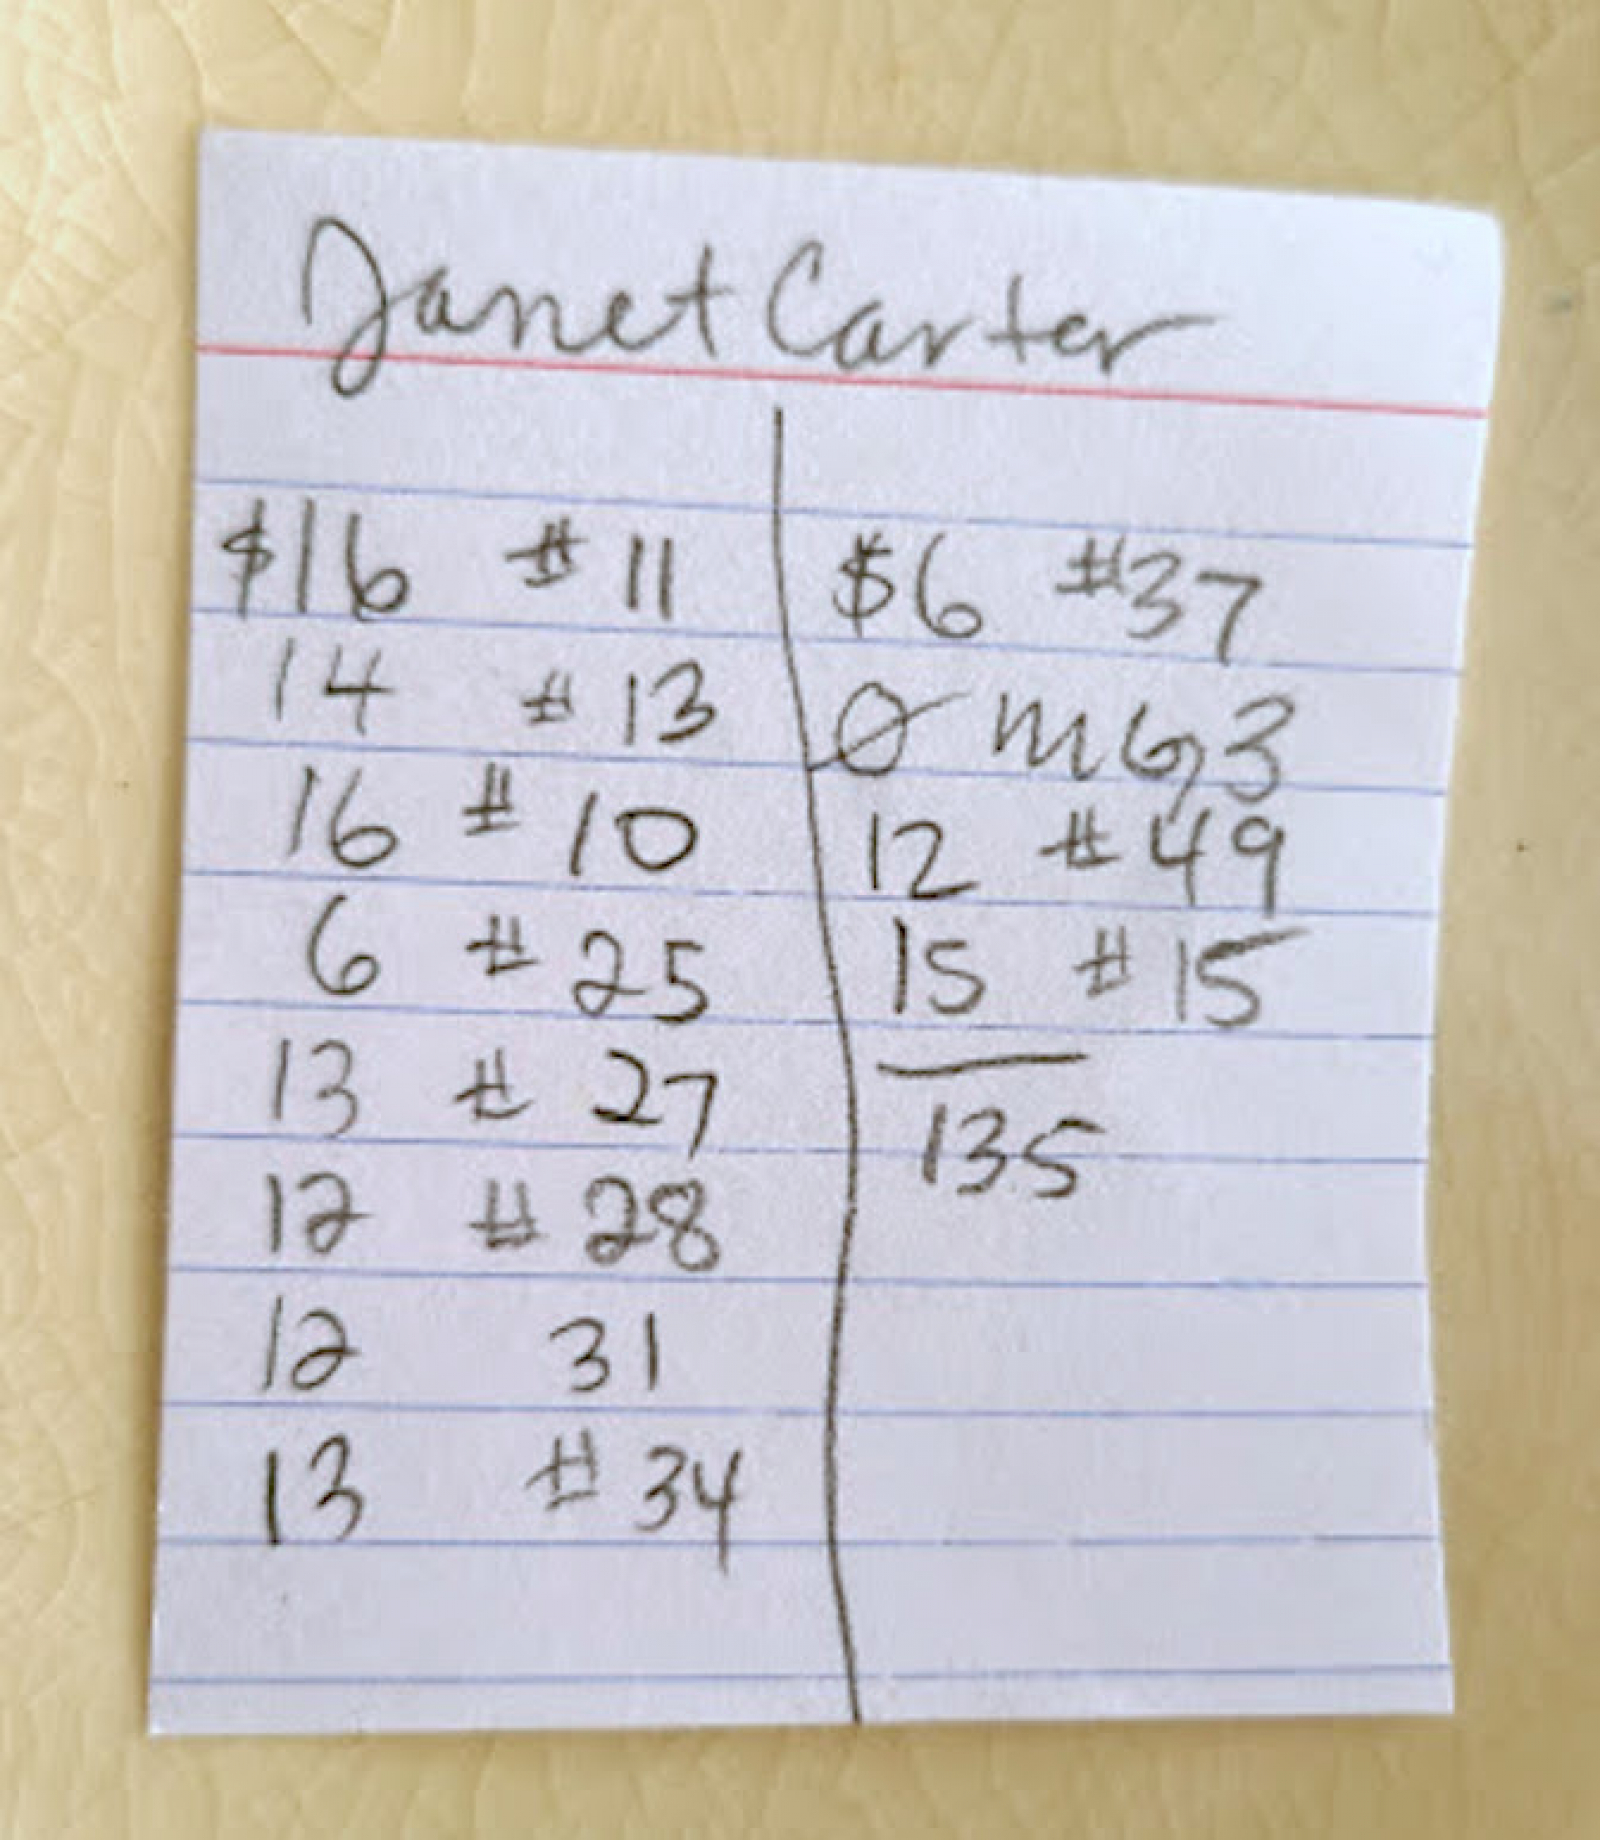 Janet Carter
$16 # 11
14 # 13
16 # 10
6 # 25
13 # 27
12 # 28
12 31
13 # 34
$6 #37
12 # 49
15 # 15
135